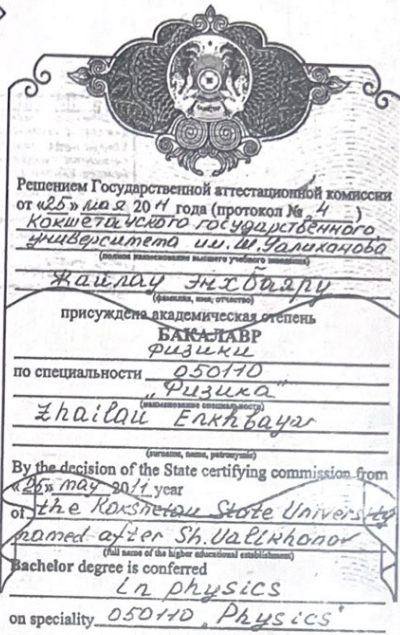 Решением Государственной аттестационной комиссии
от «25» мая 2011 года (протокол № 4 )
Кокшетауского государственного
университета им. Ш. Уалиханова
(полное наименование высшего учебного заведения)
Жайлау Энхбаяру
(фамилия, имя, отчество)
присуждена академическая степень
БАКАЛАВР
физики
по специальности 050110
"Физика"
(наименование специальности)
Zhailau Enkhbayar
(surname, name, patronymic)
By the decision of the State certifying commission from
«25» may 2011 year
of the Kokshetau State University
named after Sh. Ualikhanov
(full name of the higher educational establishment)
Bachelor degree is conferred
in physics
on speciality 050110 „Physics"